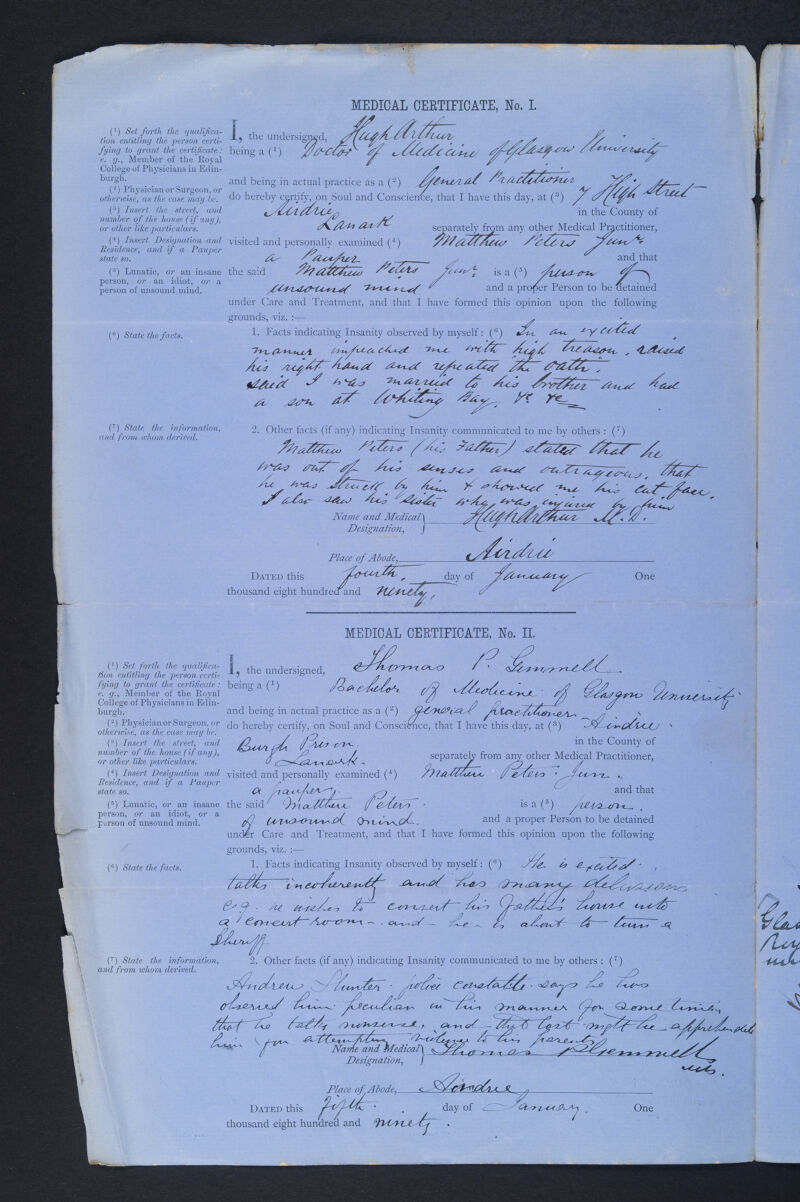 MEDICAL CERTIFICATE, No. I.
(1) Set forth the qualifica-
tion entitling the person certi-
fying to grant the certificate:
e. g., Member of the Royal
College of Physicians in Edin-
burgh.
(2) Physician or Surgeon, or
otherwise, as the case may be.
(3) Insert the street, and
number of the house (if any),
or other like particulars.
(4) Insert Designation and
Residence, and if a Pauper
state so.
(5) Lunatic, or an insane
person, or an idiot, or a
person of unsound mind.
I, the undersigned, Hugh Arthur
being a (1) Doctor of Medicine of Glasgow University
and being in actual practice as a (2) General Practitioner
do hereby certify, on Soul and Conscience, that I have this day, at (3) 7 High Street
Airdrie in the County of
Lanark separately from any other Medical Practitioner,
visited and personally examined (4) Matthew Peters Junr.
a Pauper and that
the said Matthew Peters Junr. is a (5) person of
unsound mind and a proper Person to be detained
under Care and Treatment, and that I have formed this opinion upon the following
grounds, viz. :—
(6) State the facts.
1. Facts indicating Insanity observed by myself: (6) In an excited
manner impeached me with high treason, raised
his right hand and repeated the oath.
Said I was married to his brother and had
a son at Whiting Bay, &c &c
(7) State the information,
and from whom derived.
2. Other facts (if any) indicating Insanity communicated to me by others: (7)
Matthew Peters (his Father) stated that he
was out of his senses and outrageous, that
he was struck by him & showed me his cut face.
I also saw his sister who was injured by him
Name and Medical Designation, Hugh Arthur M.D.
Place of Abode, Airdrie
DATED this fourth, day of January One
thousand eight hundred and ninety,
MEDICAL CERTIFICATE, No. II.
(1) Set forth the qualifica-
tion entitling the person certi-
fying to grant the certificate:
e. g., Member of the Royal
College of Physicians in Edin-
burgh.
(2) Physician or Surgeon, or
otherwise, as the case may be.
(3) Insert the street, and
number of the house (if any),
or other like particulars.
(4) Insert Designation and
Residence, and if a Pauper
state so.
(5) Lunatic, or an insane
person, or an idiot, or a
person of unsound mind.
I, the undersigned, Thomas P. Gemmell
being a (1) Bachelor of Medicine of Glasgow University
and being in actual practice as a (2) general practitioner
do hereby certify, on Soul and Conscience, that I have this day, at (3) Airdrie
Burgh Prison in the County of
Lanark. separately from any other Medical Practitioner,
visited and personally examined (4) Matthew Peters Jun.
a pauper and that
the said Matthew Peters is a (5) person.
of unsound mind. and a proper Person to be detained
under Care and Treatment, and that I have formed this opinion upon the following
grounds, viz. :—
(6) State the facts.
1. Facts indicating Insanity observed by myself: (6) He is excited
talks incoherently and has many delusions
e.g. he wishes to convert his father's house into
a concert room - and he is about to turn a
Sheriff
(7) State the information,
and from whom derived.
2. Other facts (if any) indicating Insanity communicated to me by others: (7)
Andrew Hunter police constable says he has
observed him peculiar in his manner for some time
that he talks nonsense, and that last night he apprehended
him for attempting violence to his parents
Name and Medical Designation, Thomas P Gemmell
M.B.
Place of Abode, Airdrie
DATED this fifth day of January. One
thousand eight hundred and ninety.